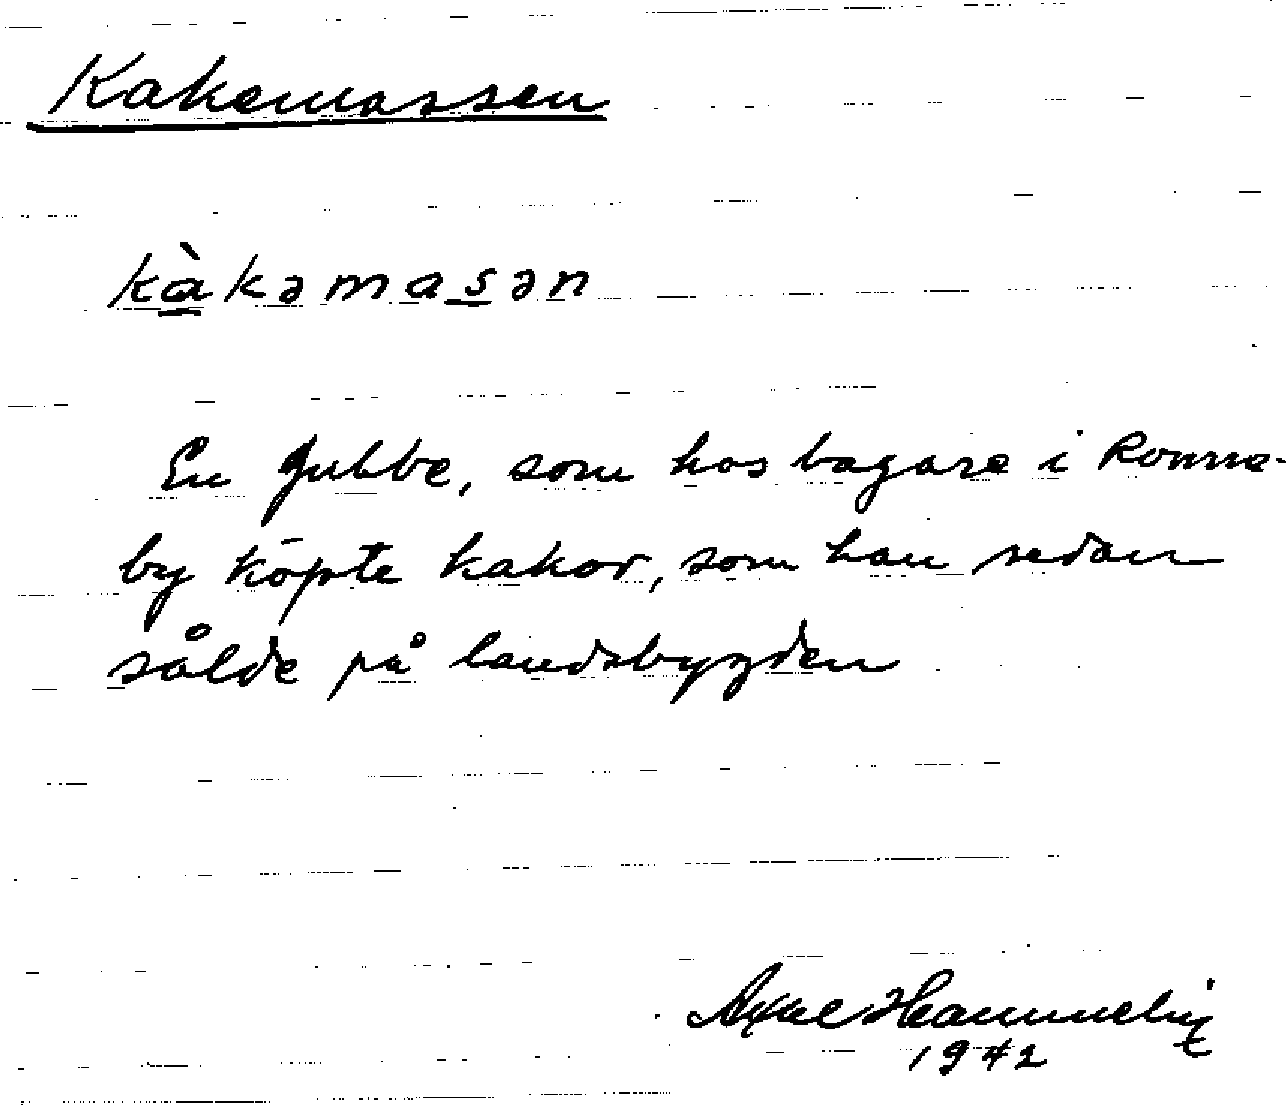 Kakemassen
kàkəmasən
En gubbe, som hos bagare i Ronne-
by köpte kakor, som han sedan
sålde på landsbygden
Axel
1942